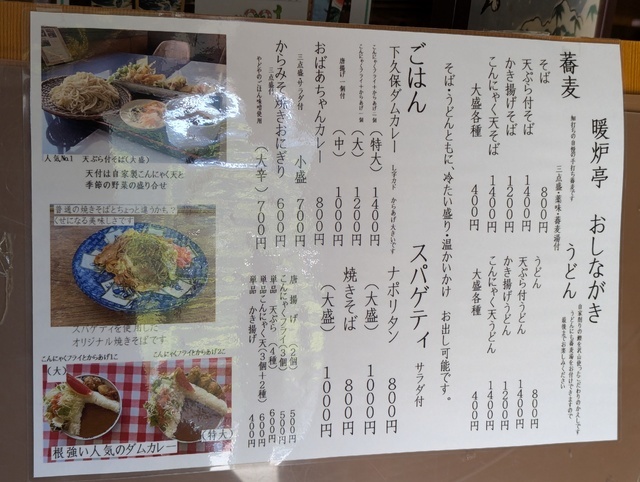 暖炉亭　おしながき
蕎麦
三点盛・薬味・蕎麦湯付
そば　800円
天ぷら付そば　1400円
かき揚げそば　1200円
こんにゃく天そば　1400円
大盛各種　400円
うどん
うどん　800円
天ぷら付うどん　1400円
かき揚げうどん　1200円
こんにゃく天うどん　1400円
大盛各種　400円
そば・うどんともに、冷たい盛り・温かいかけ　お出し可能です。
ごはん
下久保ダムカレー
（特大）　1400円
（大）　1200円
（中）　1000円
おばあちゃんカレー　800円
三点盛・サラダ付　小盛　700円
からみそ焼きおにぎり　600円
三点盛付
（大辛）　700円
スパゲティ　サラダ付
ナポリタン　800円
（大盛）　1000円
焼きそば　800円
（大盛）　1000円
唐揚げ（2個）　500円
こんにゃくフライ（3個）　500円
単品　天ぷら（4種）　600円
単品　こんにゃく天（3個＋2種）　600円
単品　かき揚げ　400円
人気No.1　天ぷら付そば（大盛）
天付は自家製こんにゃく天と
季節の野菜の盛り合せ
普通の焼きそばとちょっと違うかも
くせになる美味しさです
スパゲティを使用した
オリジナル焼きそばです
こんにゃくフライとからあげ1こ
こんにゃくフライとからあげ2こ
（大）
（特大）
根強い人気のダムカレー